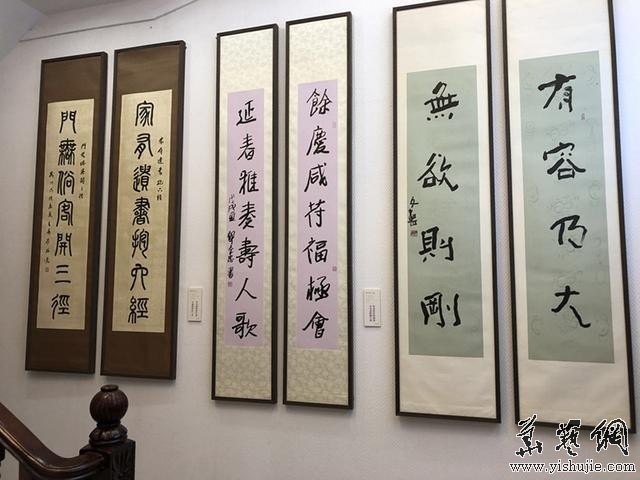 有容乃大
無欲則剛
餘慶咸符福極會
延春雅奏壽人歌
家有遺書抱六經
門無俗客開三徑
華藝網
www.yishujie.com